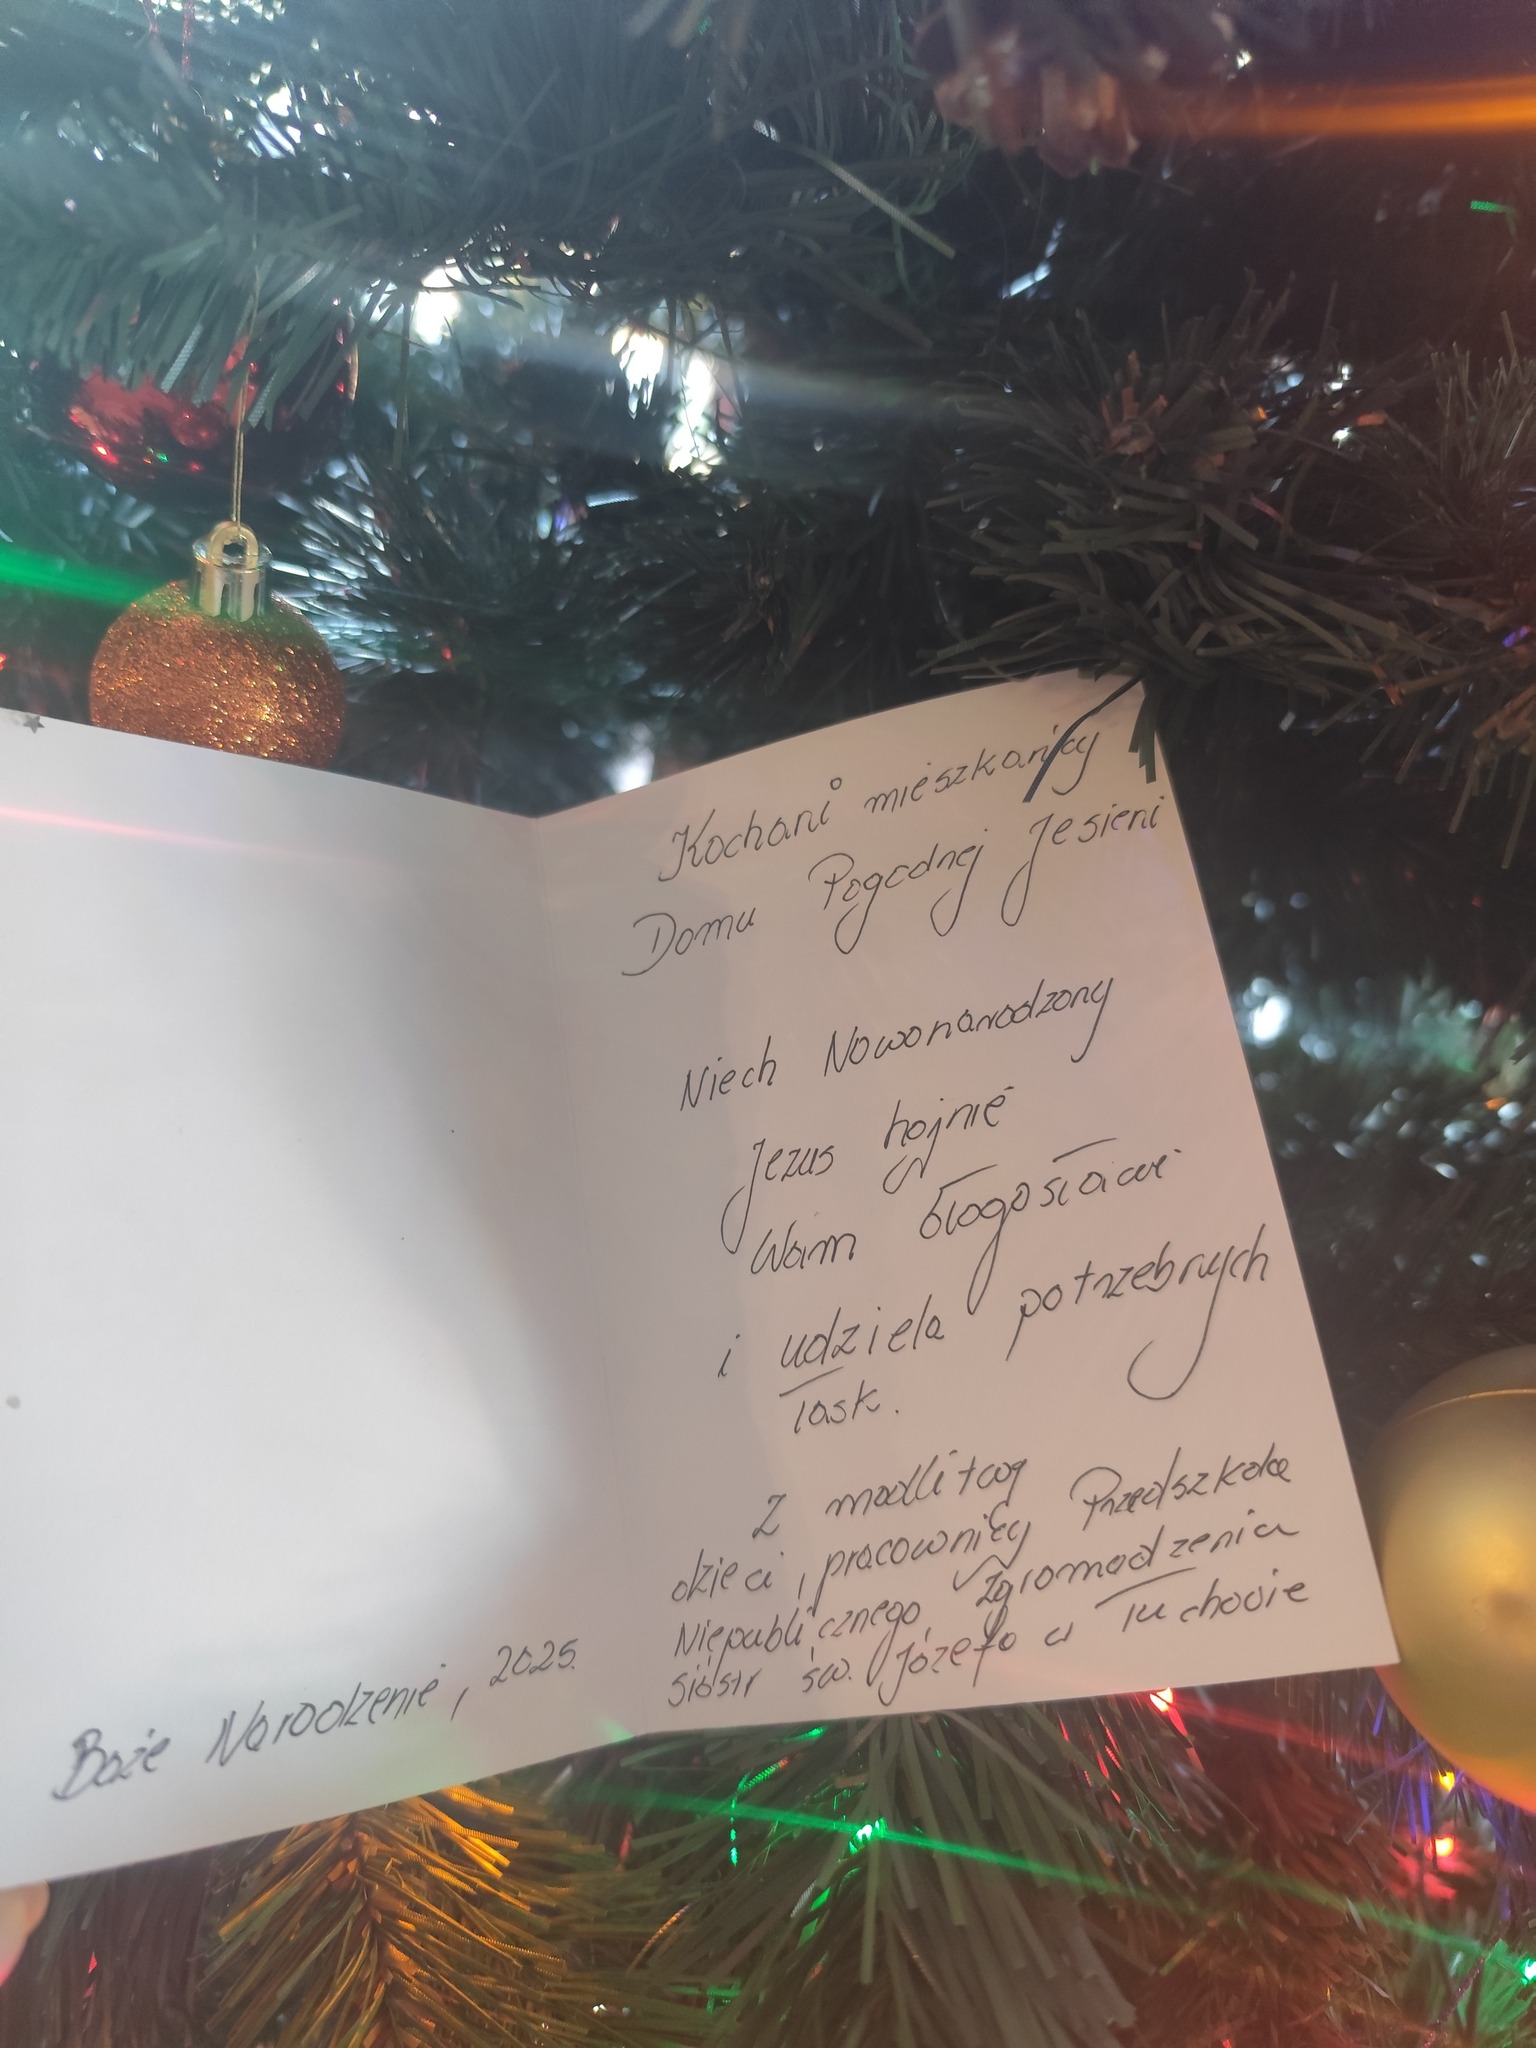 Boże Narodzenie, 2025.
Kochani mieszkańcy
Domu Pogodnej Jesieni
Niech Nowonarodzony
Jezus hojnie
Wam błogosławi
i udziela potrzebnych
łask.
Z modlitwą
dzieci, pracownicy Przedszkola
Niepublicznego Zgromadzenia
Sióstr św. Józefa w Tuchowie